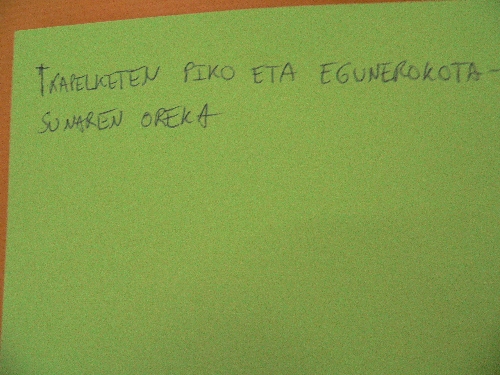 TXAPELKETEN PIKO ETA EGUNEROKOTA-
SUNAREN OREKA